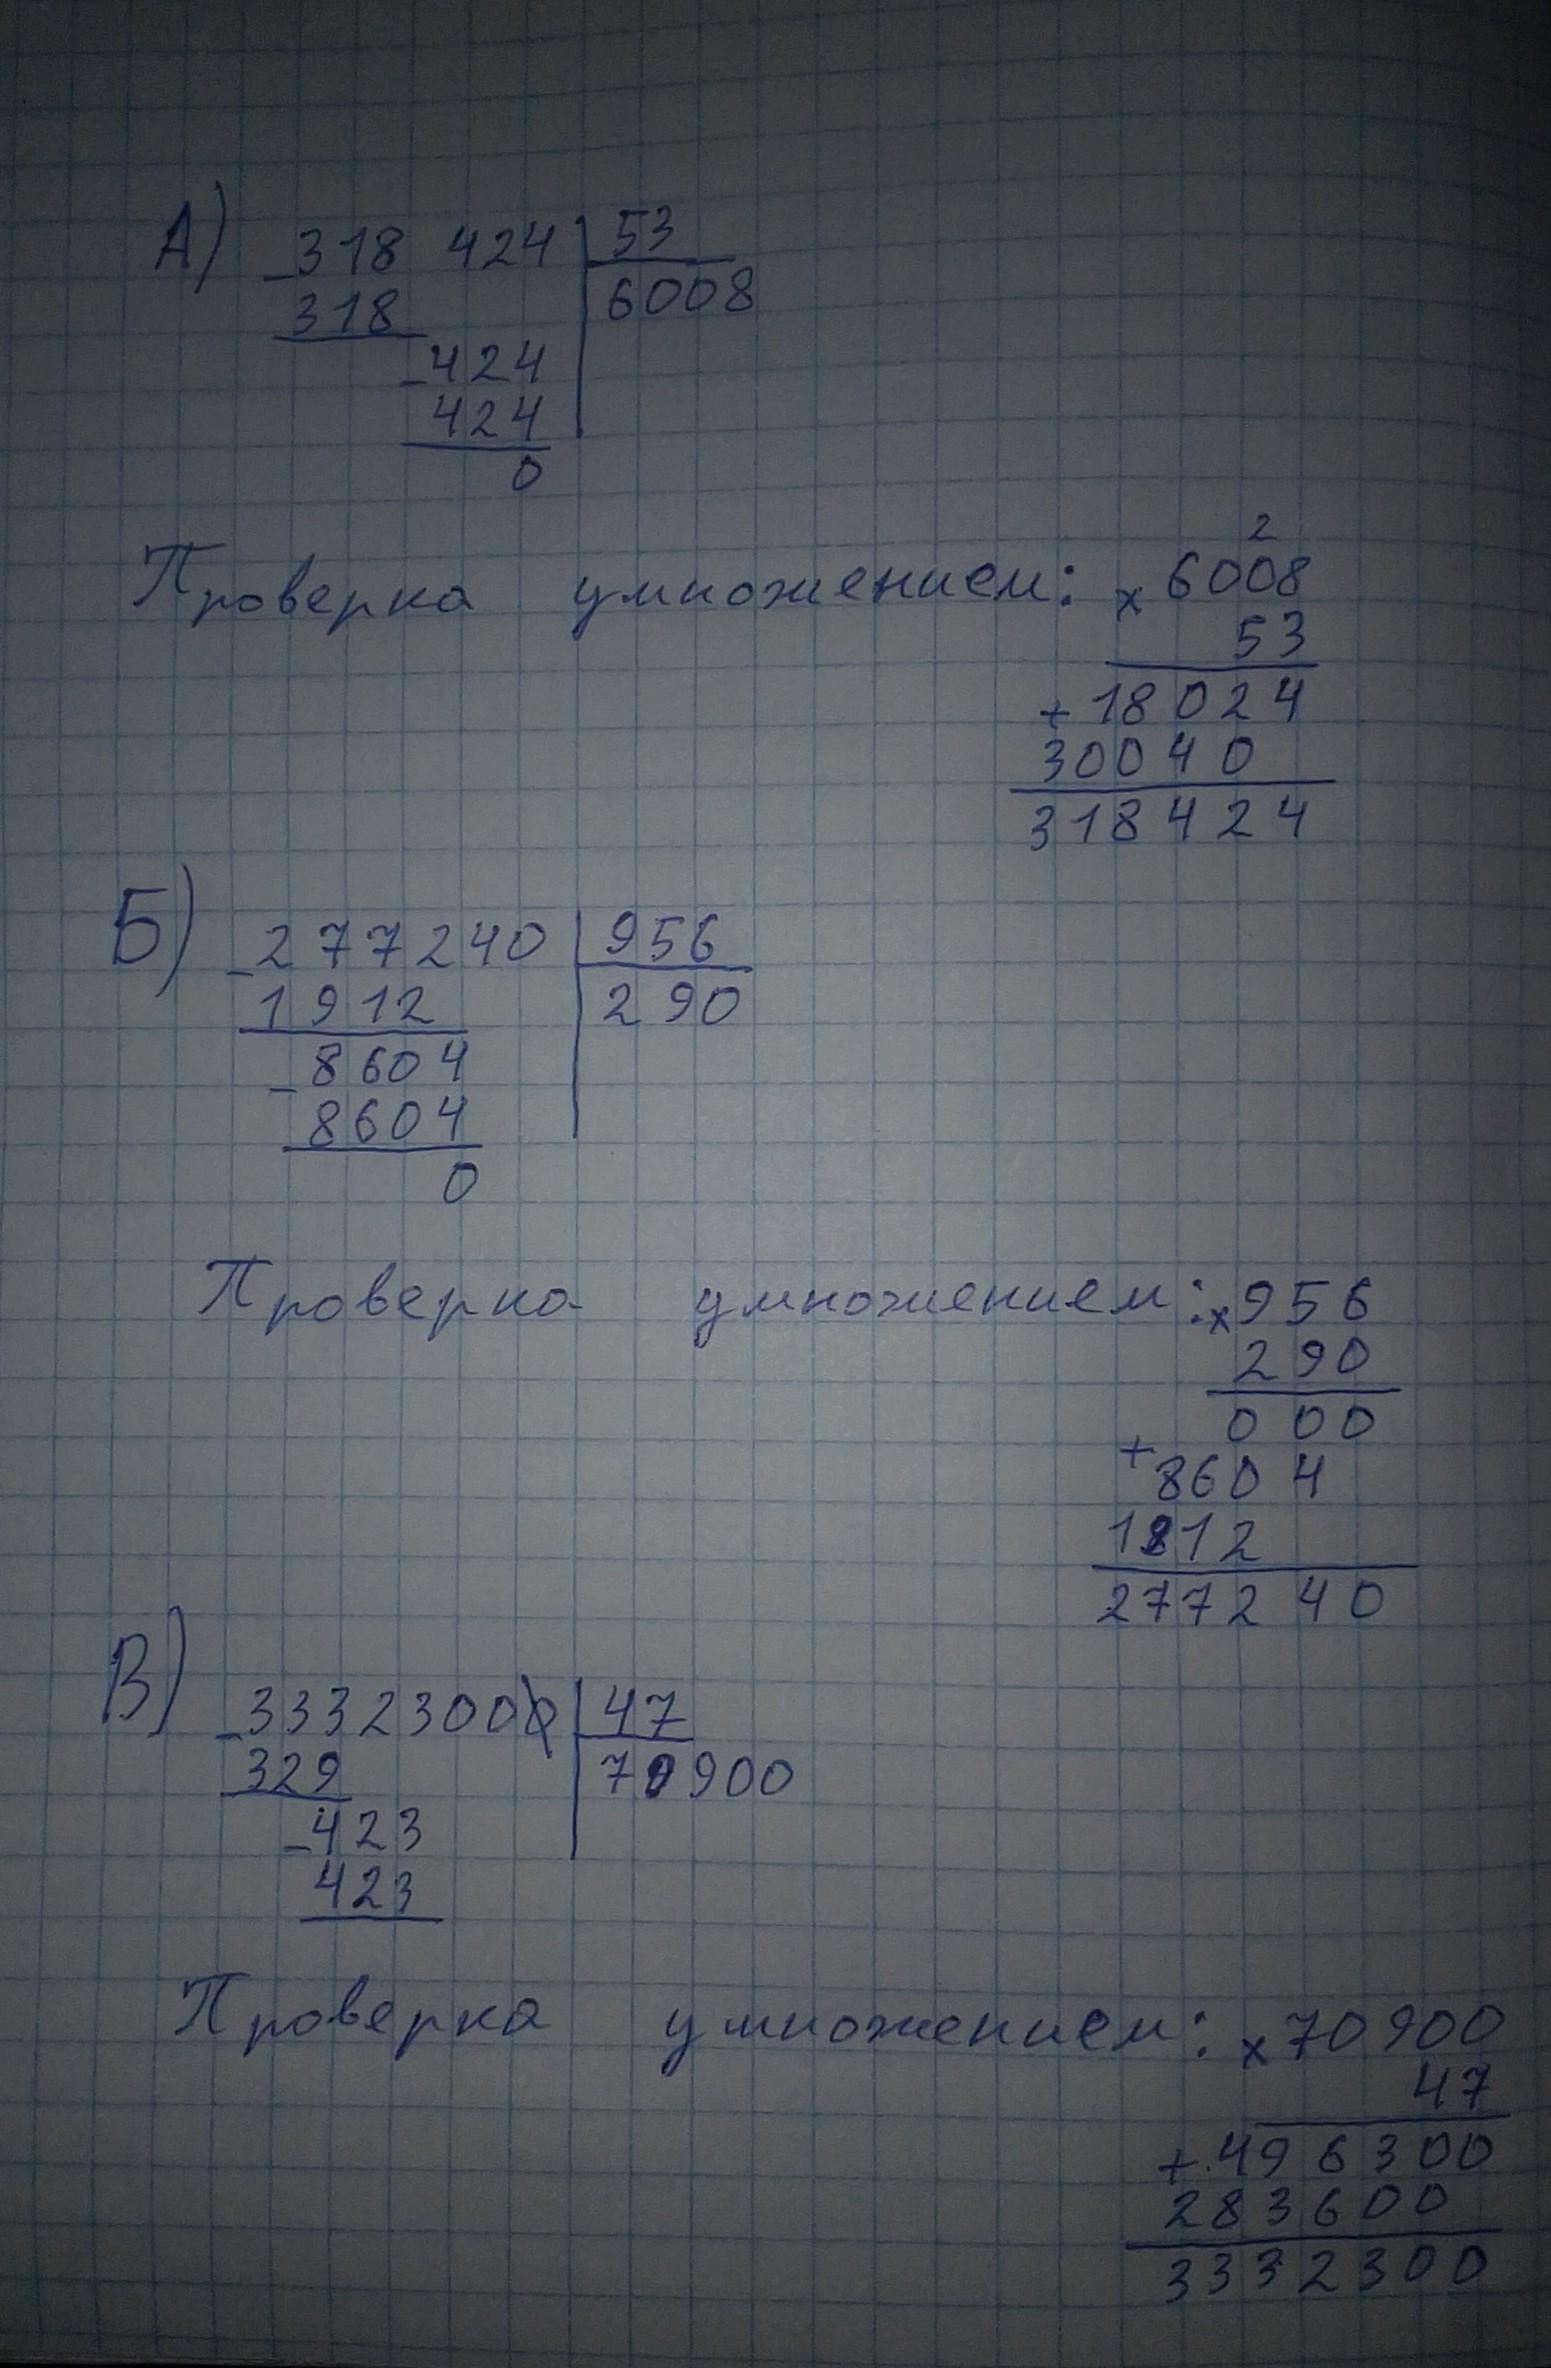 А) 318 424 | 53
318 | 6008
424
424
0
Проверка умножением: × 6008
2
53
+ 18024
30040
318424
Б) 277240 | 956
1912 | 290
8604
8604
0
Проверка умножением: × 956
290
000
+ 8604
1912
277240
В) 33323000 | 47
329 | 70900
423
423
Проверка умножением: × 70900
47
+ 496300
283600
3332300